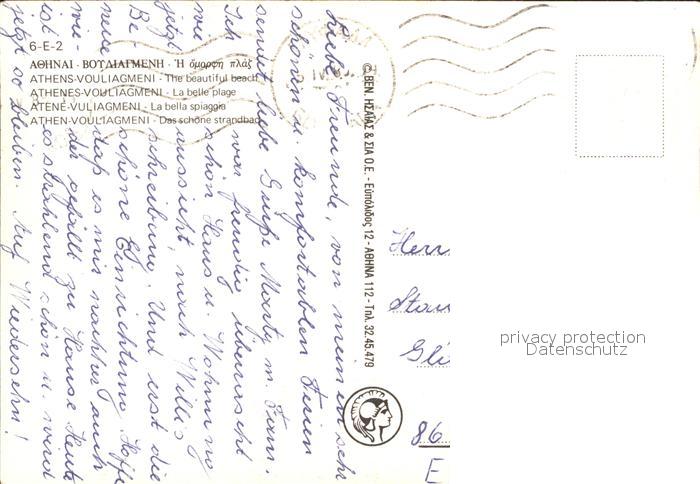 6-E-2
ΑΘΗΝΑΙ - ΒΟΥΛΙΑΓΜΕΝΗ - Ἡ ὄμορφη πλάζ
ATHENS-VOULIAGMENI - The beautiful beach
ATHENES-VOULIAGMENI - La belle plage
ATENE-VULIAGMENI - La bella spiaggia
ATHEN-VOULIAGMENI - Das schöne strandbad
© ΒΕΝ. ΗΣΑΪΑΣ & ΣΙΑ Ο.Ε. - Εὐπόλιδος 12 - ΑΘΗΝΑ 112 - Τηλ. 32.45.479
Liebe Freunde, von meinen sehr
schönen u. komfortablen Ferien
sendet liebe Grüße Marty m. Fam.
Ich war freudig überrascht
wie schön Haus u. Wohnung
jetzt aussieht nach Willis
Beschreibung. Und erst die
neue schöne Einrichtung. Hoffe
daß es mir nachher auch
wieder gefällt zu Hause. Heute
ist es strahlend schön u. wird
jetzt so bleiben. Auf Wiedersehn!
Herr
Gli
86
E
privacy protection
Datenschutz